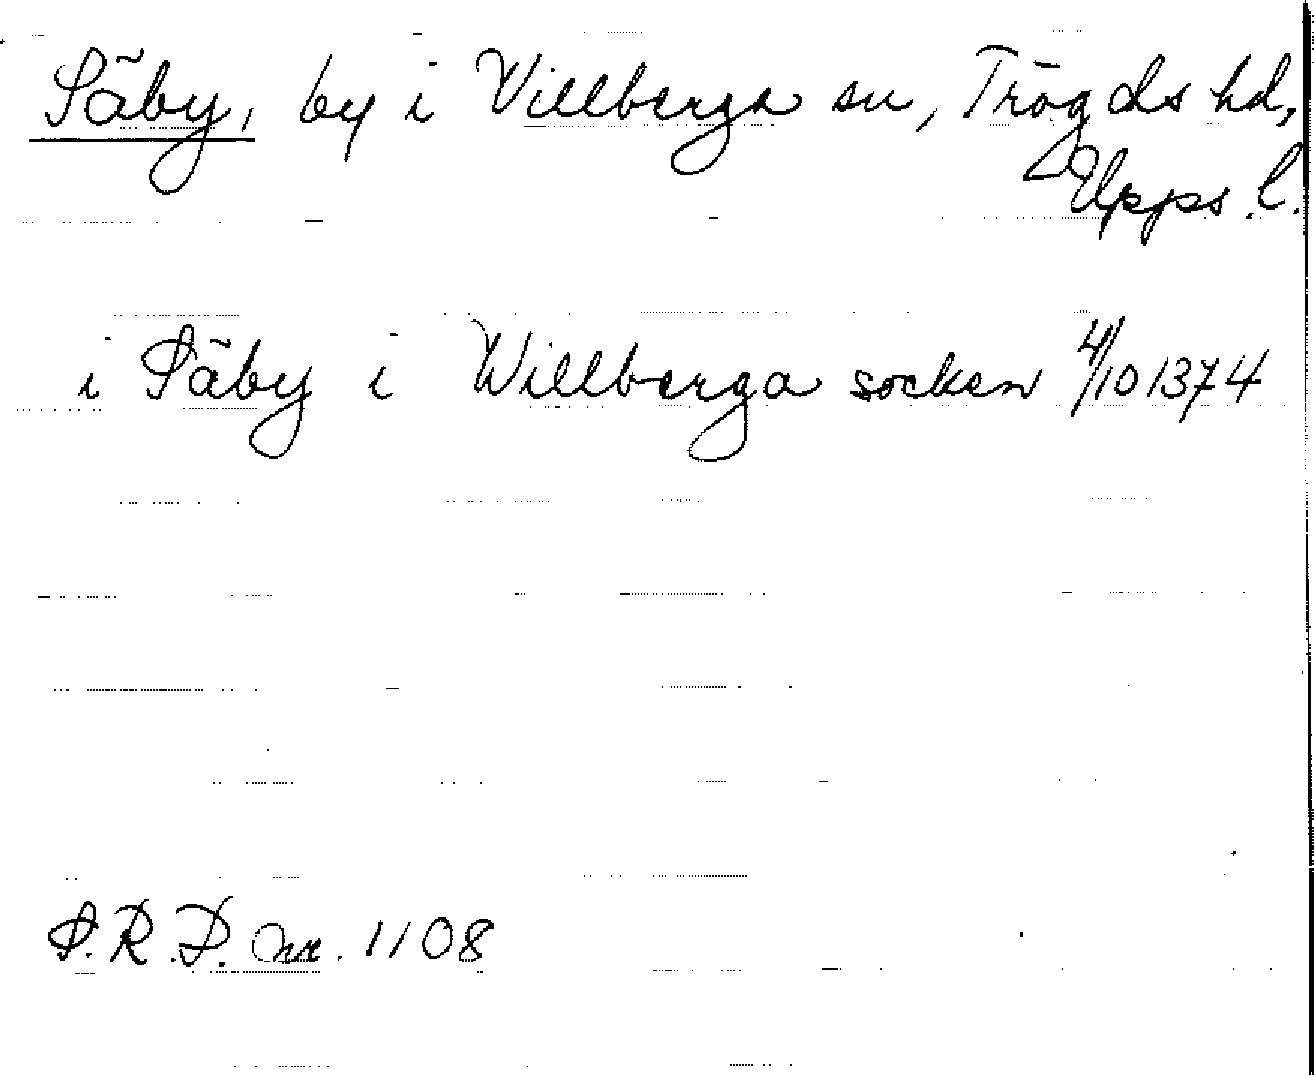 Säby, by i Villberga sn, Trögds hd,
Upps. l.
i Säby i Willberga socken 4/10 1374
S.R.D. nr. 1108